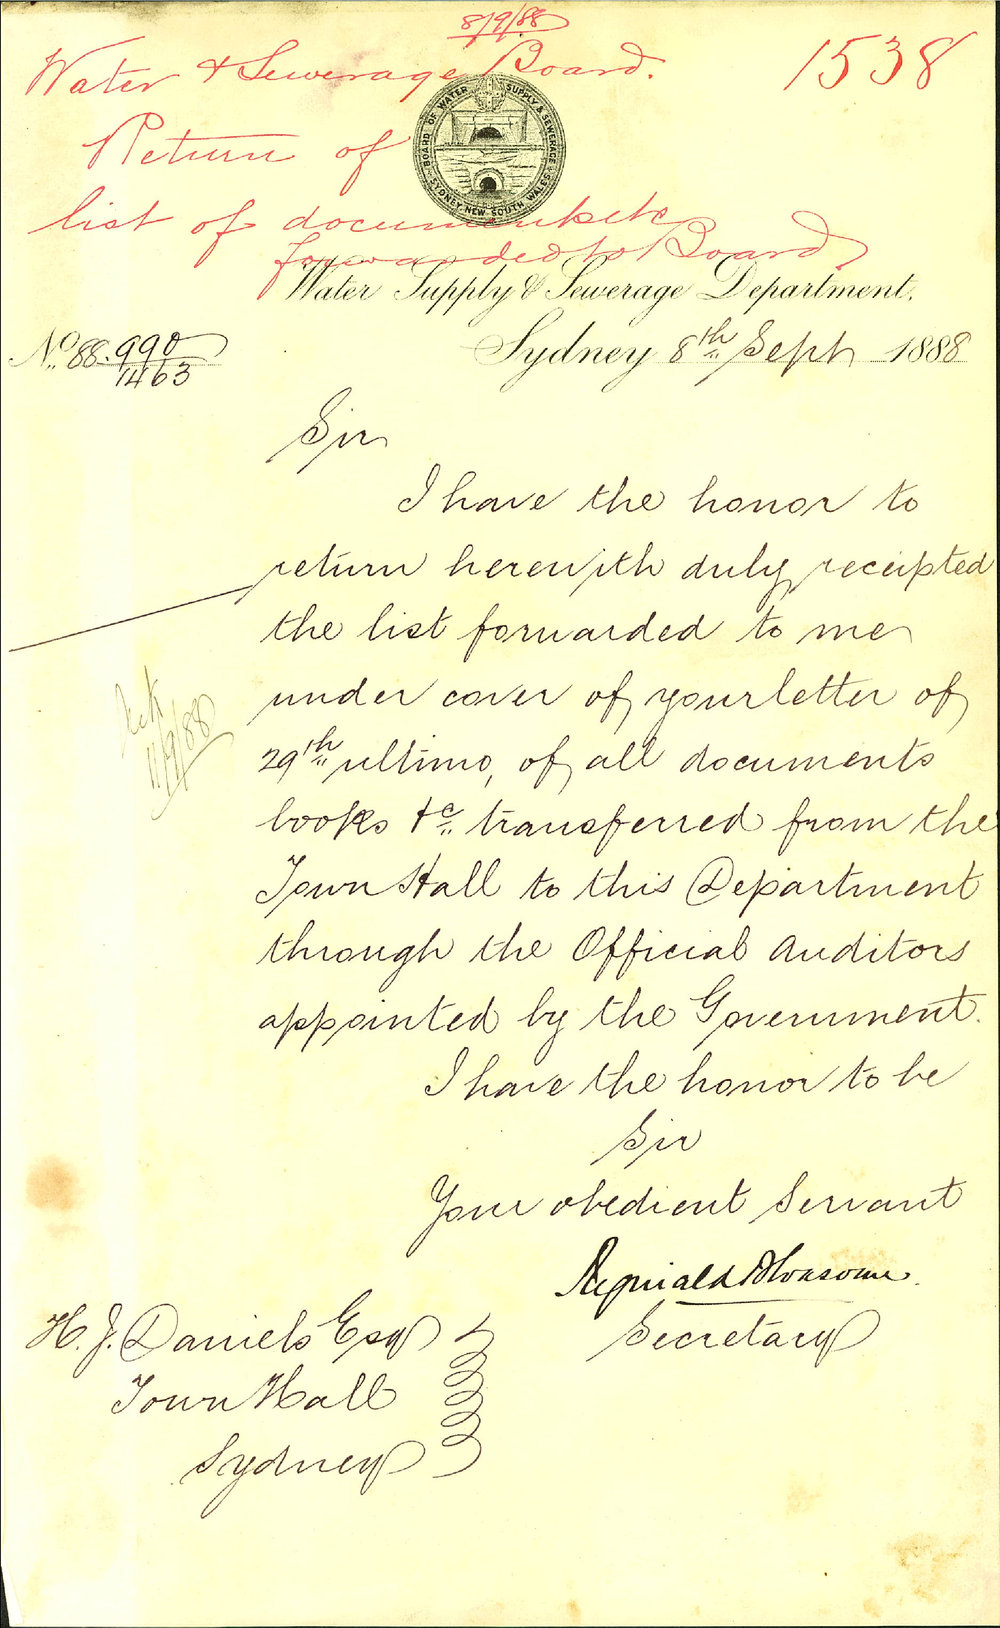 8/9/88
Water & Sewerage Board.
1538
Return of
list of documents etc
forwarded to Board
BOARD OF WATER SUPPLY & SEWERAGE
SYDNEY NEW SOUTH WALES
Water Supply & Sewerage Department.
No. 88. 990
1463
Sydney 8th Sept 1888
Sir
I have the honor to
return herewith duly receipted
the list forwarded to me
under cover of your letter of
29th ultimo, of all documents
books &c. transferred from the
Town Hall to this Department
through the Official Auditors
appointed by the Government.
I have the honor to be
Sir
Your obedient Servant
Reginald
Secretary
H. J. Daniels Esq
Town Hall
Sydney
11/9/88